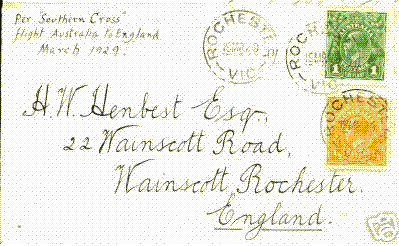 Per "Southern Cross"
flight Australia to England
March 1929.
ROCHESTE
VIC
ROCHEST
VIC
1 1
H. W. Henbest Esq,
22 Wainscott Road,
Wainscott Rochester.
England.
ROCHEST